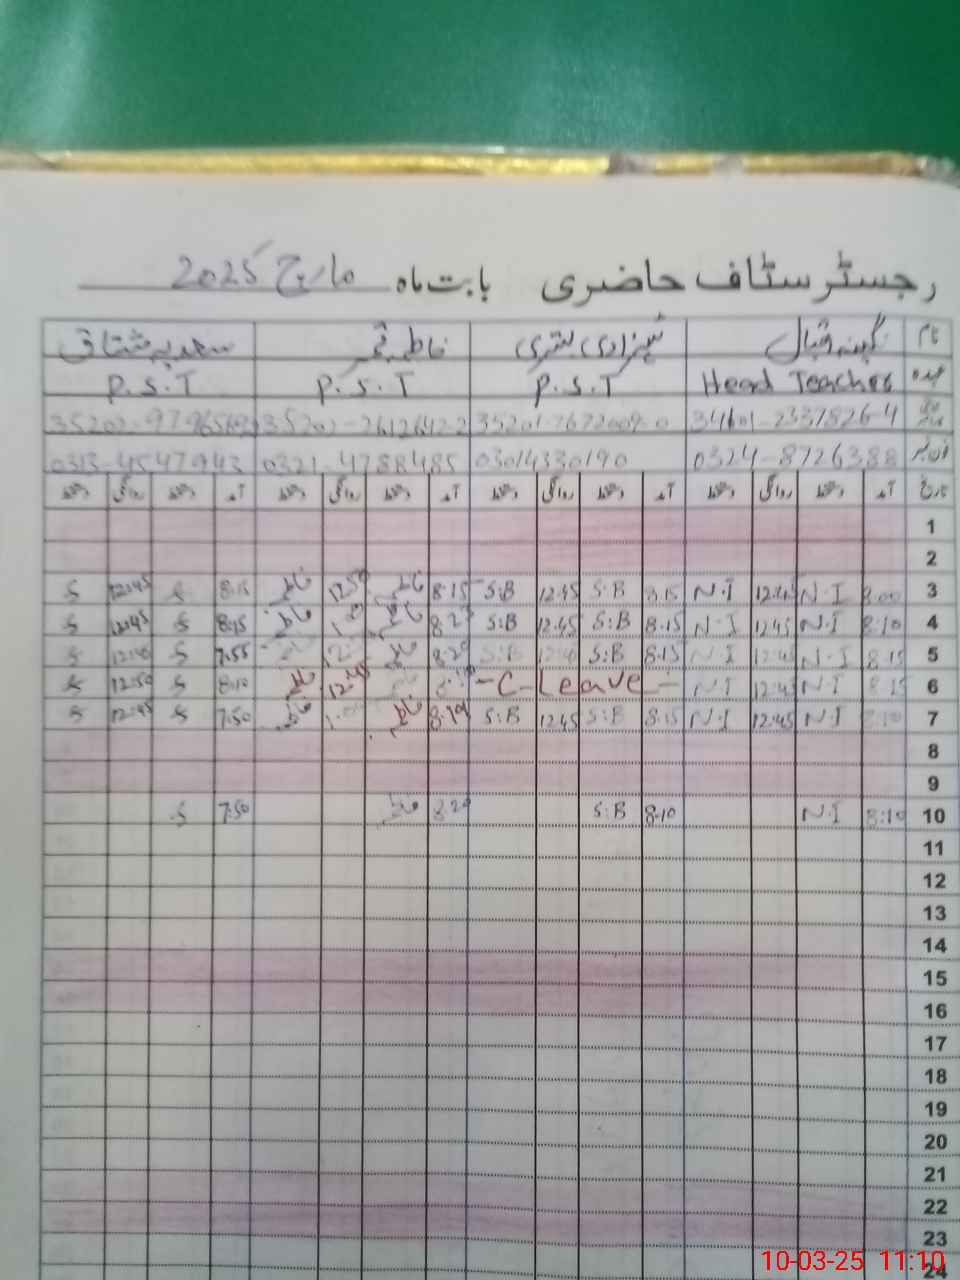 رجسٹر سٹاف حاضری بابت ماہ مارچ 2025
نام نگینہ اقبال شہزادی بشریٰ فاطمہ قمر سعدیہ مشتاق
عہدہ Head Teacher P.S.T P.S.T P.S.T
34601-2337826-4 35201-7672009-0 35202-2612642-2
فون نمبر 0324-8726388 03014330190 0321-4788485 0313-4547943
تاریخ آمد دستخط روانگی دستخط آمد دستخط روانگی دستخط آمد دستخط روانگی دستخط آمد دستخط روانگی دستخط
1
2
3 8:00 N.I 12:45 N.I 8.15 S:B 12:45 S:B 8:15 فاطمہ 12:50 فاطمہ 8:15 S 12:45 S
4 8:10 N.I 12:45 N.I 8.15 S:B 12:45 S:B فاطمہ فاطمہ 8:15 S 12:45 S
5 8:15 N.I 12:45 N.I 8:15 S:B 12:40 S:B 8:20 فاطمہ 7:55 S 12:40 S
6 8:15 N.I 12:45 N.I - C - Leave - 12:45 فاطمہ 8:10 S 12:50 S
7 8:10 N.I 12:45 N.I 8:15 S:B 12:45 S:B 8:19 فاطمہ 1:00 فاطمہ 7:50 S 12:45 S
8
9
10 8:10 N.I 8:10 S:B 8:20 فاطمہ 7:50 S
11
12
13
14
15
16
17
18
19
20
21
22
23
24
10-03-25 11:10